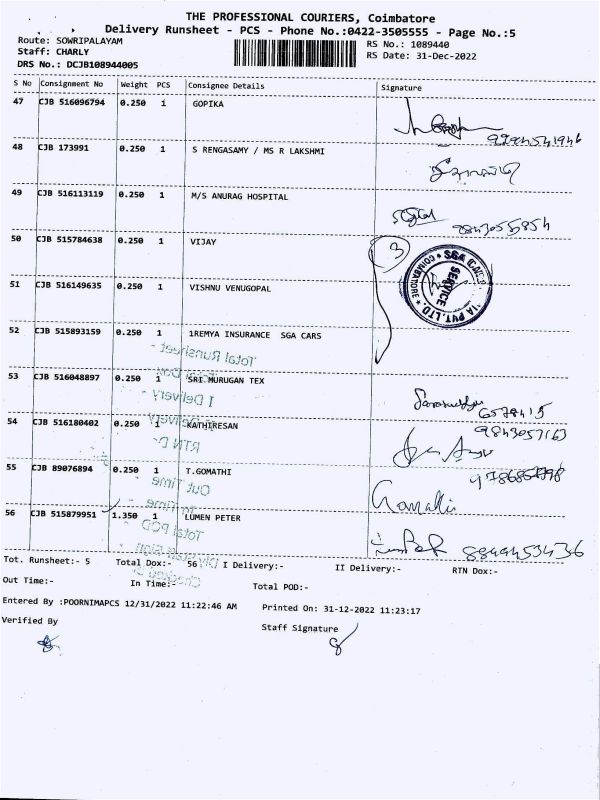 THE PROFESSIONAL COURIERS, Coimbatore
Delivery Runsheet - PCS - Phone No.:0422-3505555 - Page No.:5
Route: SOWRIPALAYAM
Staff: CHARLY
DRS No.: DCJB108944005
RS No.: 1089440
RS Date: 31-Dec-2022
S No Consignment No Weight PCS Consignee Details Signature
47 CJB 516096794 0.250 1 GOPIKA
48 CJB 173991 0.250 1 S RENGASAMY / MS R LAKSHMI
49 CJB 516113119 0.250 1 M/S ANURAG HOSPITAL
50 CJB 515784638 0.250 1 VIJAY
3
SGA CARS
SERVICE
COIMBATORE
51 CJB 516149635 0.250 1 VISHNU VENUGOPAL
52 CJB 515893159 0.250 1 1REMYA INSURANCE SGA CARS
53 CJB 516048897 0.250 1 SRI MURUGAN TEX
54 CJB 516180402 0.250 1 KATHIRESAN 9843057163
55 CJB 89076894 0.250 1 T.GOMATHI Gomathi
56 CJB 515879951 1.350 1 LUMEN PETER
Tot. Runsheet:- 5 Total Dox:- 56 I Delivery:- II Delivery:- RTN Dox:-
Out Time:- In Time:- Total POD:-
Entered By :POORNIMAPCS 12/31/2022 11:22:46 AM Printed On: 31-12-2022 11:23:17
Verified By Staff Signature